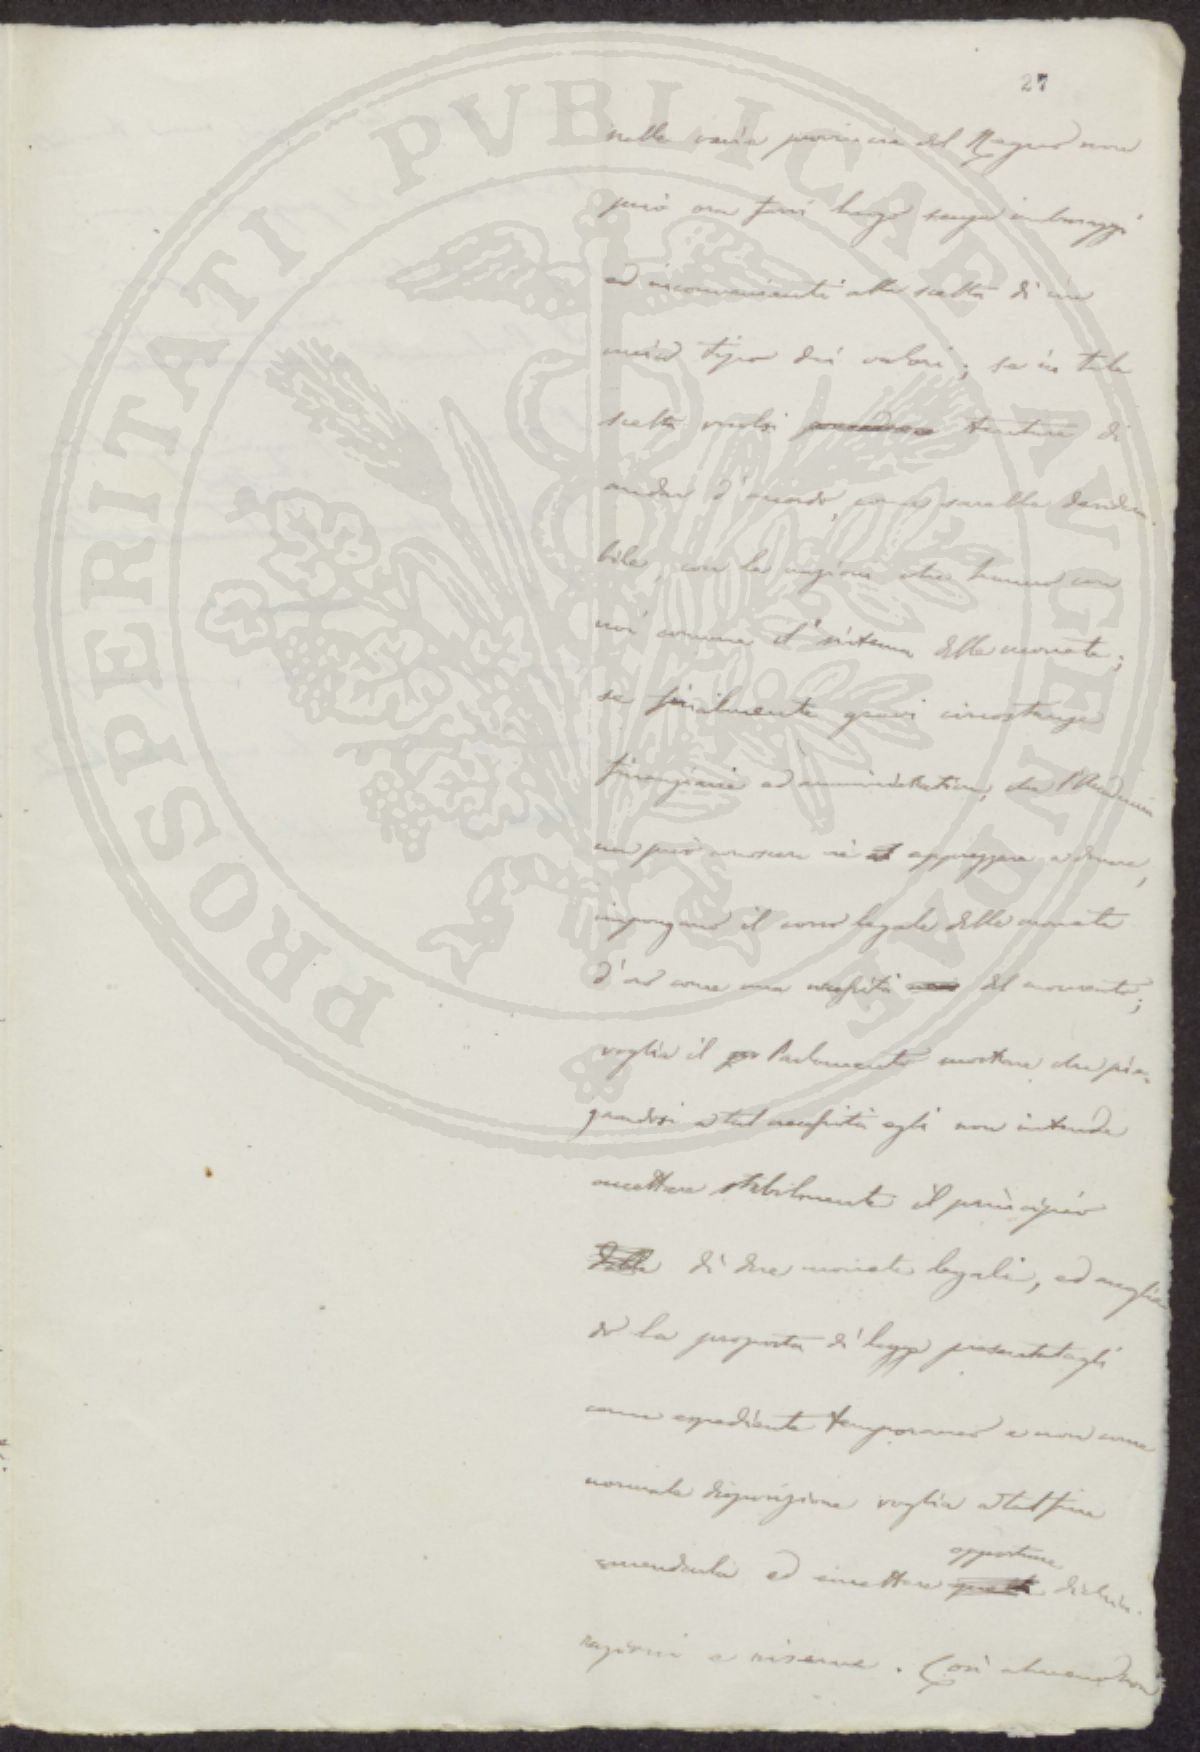 27
PROSPERITATI PVBLICAE AVGENDAE
nelle varie provincie del Regno non
può ora farsi luogo senza imbarazzi
ed inconvenienti alla scelta di un
unico tipo dei valori; se in tale
scelta vuolsi procedere tentare di
andar d'accordo, come sarebbe deside-
bile, con le nazioni che hanno con
noi comune il sistema delle monete;
se finalmente gravi circostanze
finanziarie ed amministrative, che l'Accademia
non può conoscere nè apprezzare a dovere,
impongano il corso legale delle monete
d'oro come una necessità del momento;
voglia il Parlamento mostrare che pie-
gandosi a tal necessità egli non intende
accettare stabilmente il principio
delle di due monete legali, ed accoglien
do la proposta di legge presentatagli
come espediente temporaneo e non come
normale disposizione voglia a tal fine
opportune
emendarla ed emettere queste dichia-
razioni e riserve. Così almeno non